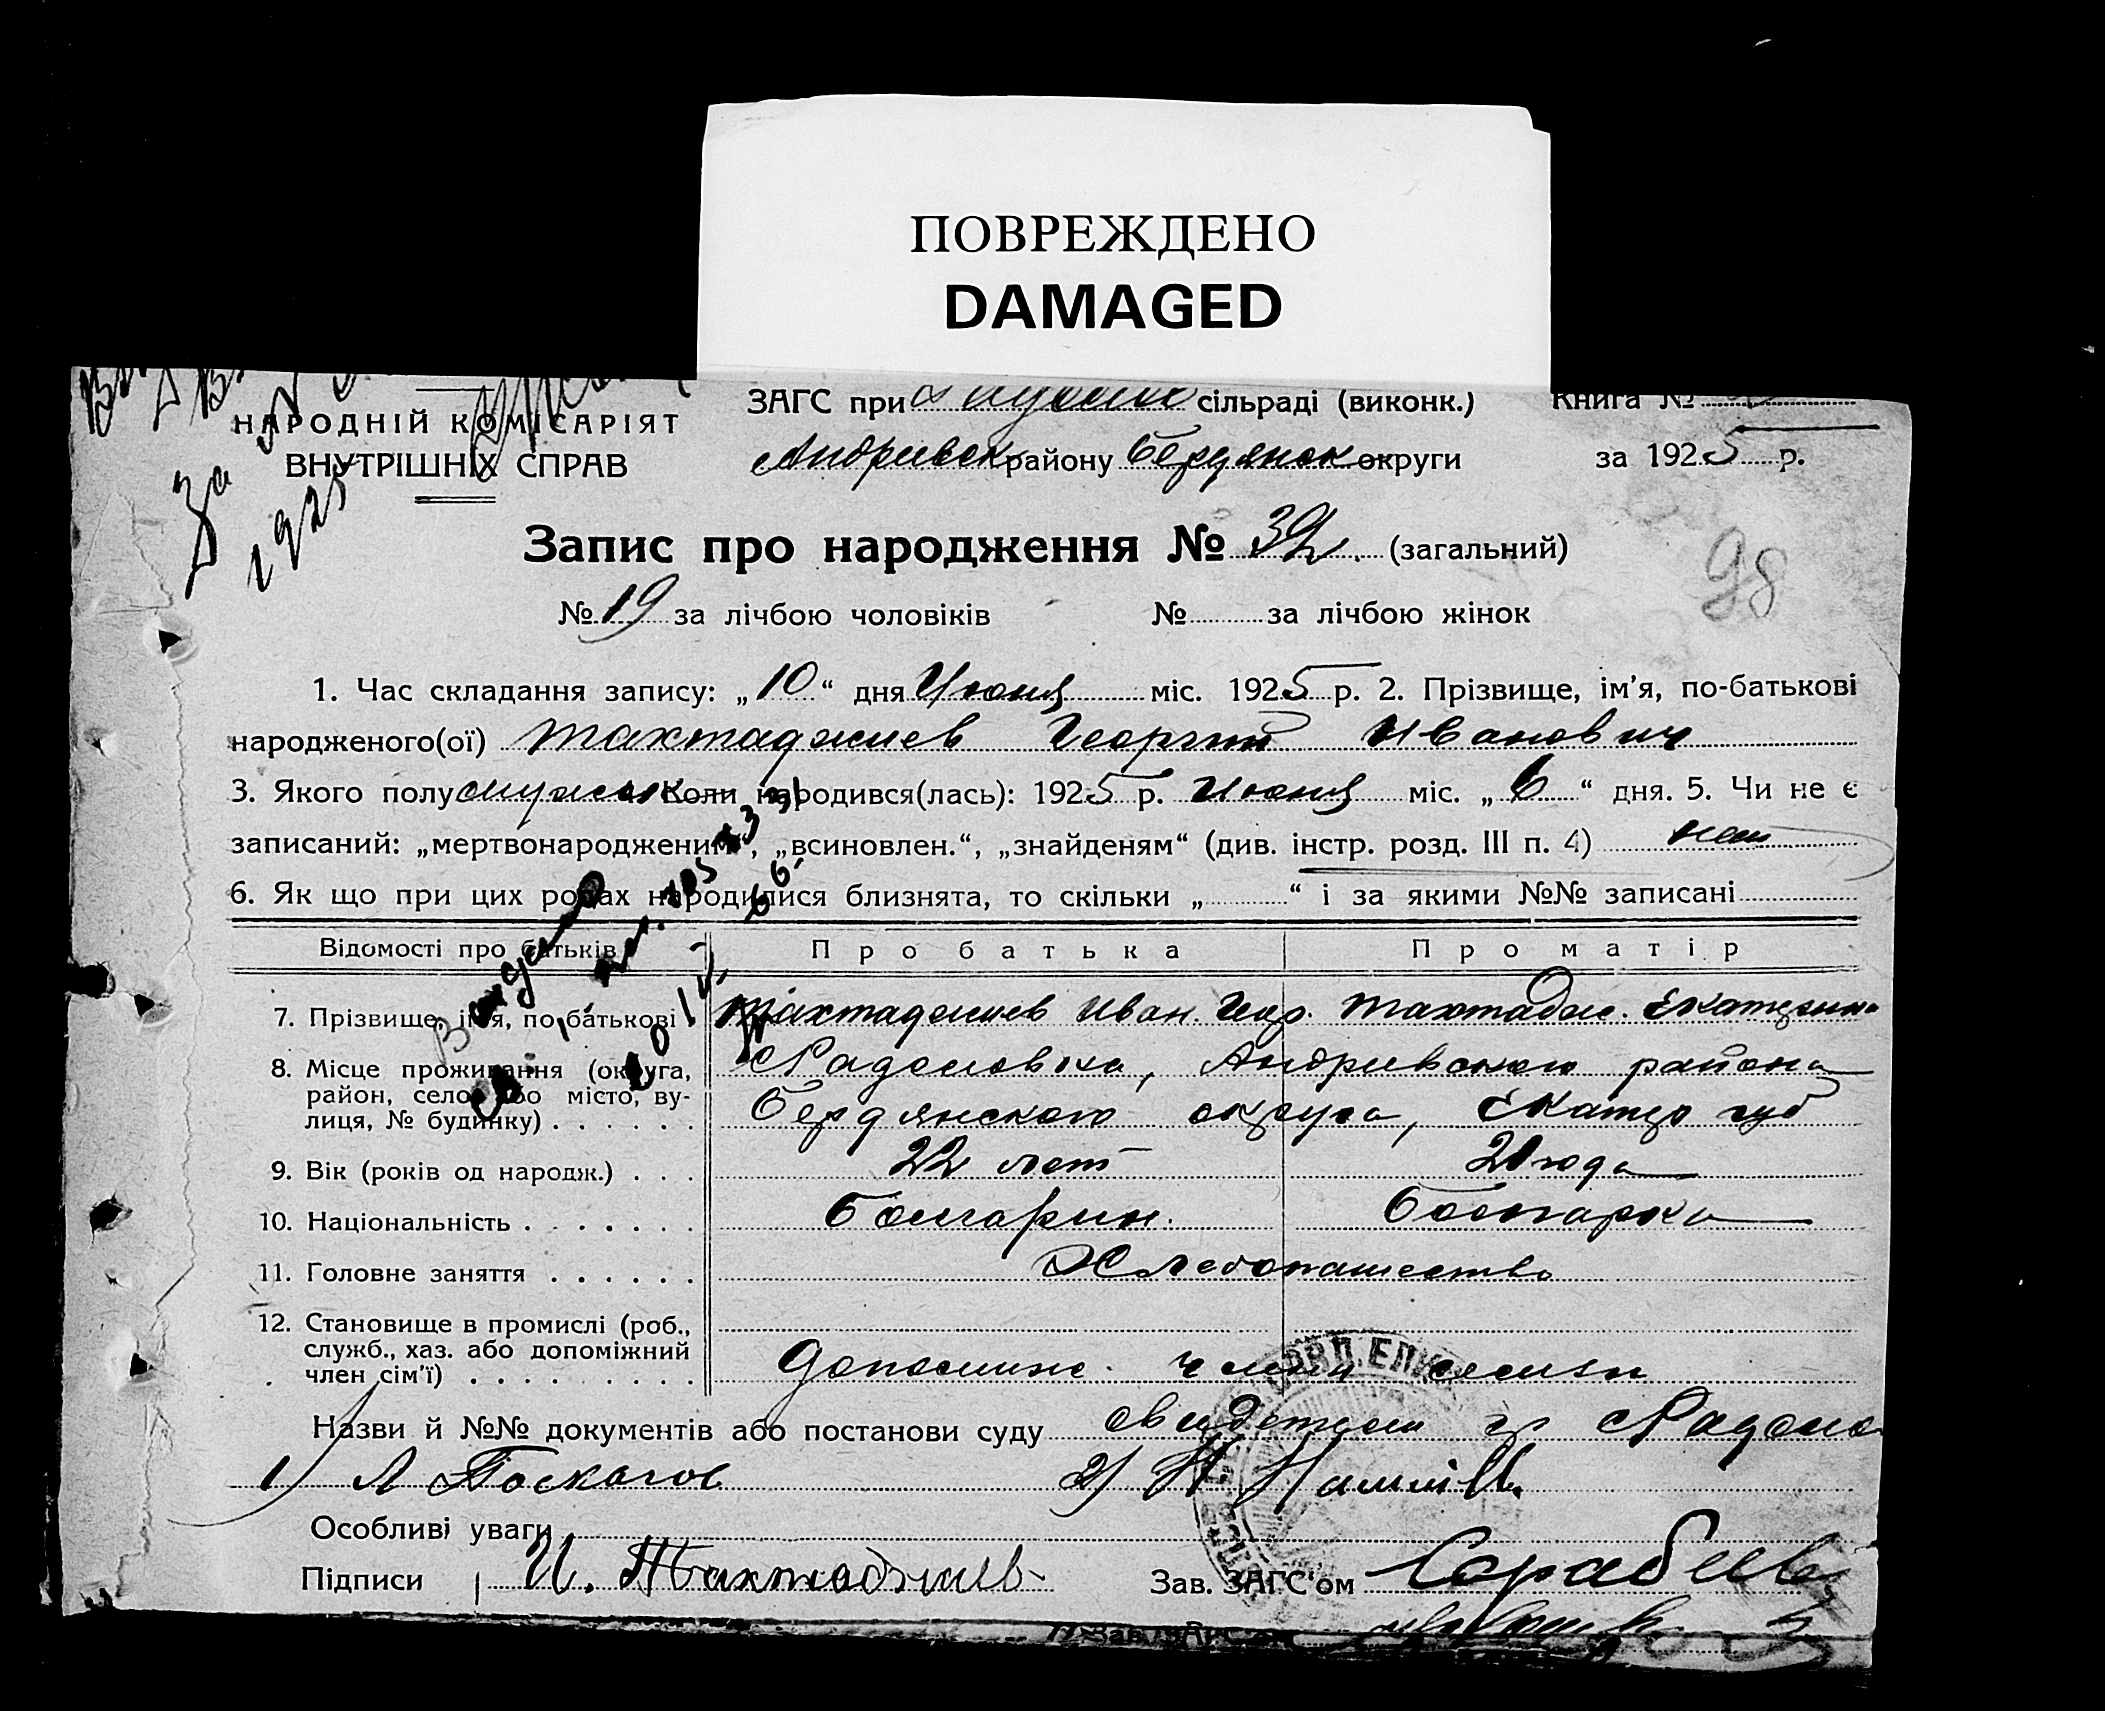 ПОВРЕЖДЕНО
DAMAGED
НАРОДНІЙ КОМІСАРІЯТ
ВНУТРІШНІХ СПРАВ
За
1925
ЗАГС при сільраді (виконк.)
Андриевск району Бердянск округи
Книга №
за 1925 р.
Запис про народження № 32 (загальний)
98
№ 19 за лічбою чоловіків № за лічбою жінок
1. Час складання запису: „10“ дня Июня міс. 1925 р. 2. Прізвище, ім'я, по-батькові
народженого(ої) Тахтаджиев Георгий Иванович
3. Якого полу мужск Коли народився(лась): 1925 р. Июня міс. „6“ дня. 5. Чи не є
записаний: „мертвонародженим“, „всиновлен.“, „знайденям“ (див. інстр. розд. III п. 4) нет
6. Як що при цих родах народилися близнята, то скільки „ “ і за якими №№ записані
Відомості про батьків Про батька Про матір
7. Прізвище, ім'я, по-батькові Тахтаджиев Иван Геор. Тахтадж. Екатерина
8. Місце проживання (округа, район, село або місто, вулиця, № будинку) Радоловка, Андриевского района
Бердянского округа, Екатер губ
9. Вік (років од народж.) 22 лет 21 года
10. Національність Болгарин. Болгарка
11. Головне заняття Хлебопашество
12. Становище в промислі (роб.,
служб., хаз. або допоміжний
член сім'ї) Допомижн. член семьи
Назви й №№ документів або постанови суду свидетели гр
1) 2)
Особливі уваги
Підписи И. Тахтаджиев Зав. ЗАГС'ом